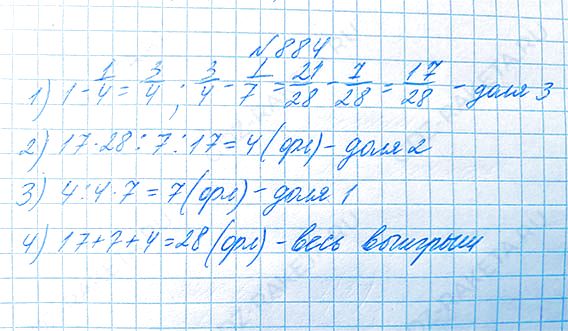 №884
1) 1 - 1/4 = 3/4 ; 3/4 - 1/7 = 21/28 - 7/28 = 17/28 - доля 3
2) 17·28:7:17=4(фл)-доля 2
3) 4:4·7=7(фл)-доля 1
4) 17+7+4=28(фл)-весь выигрыш